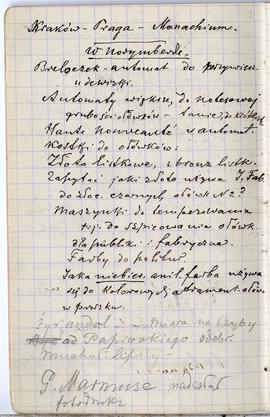 Kraków - Praga - Monachium.
W Norymberdze.
Breloczek-automat do
Automaty większe, do notesowej
grubości ołówków - tanie, i do krótkich
Haute nouveauté w automat.
Kostki do ołówków.
Złoto listkowe, i bronz listk.
Zapytać jaki złoto używa J. Fab.
do złoc. czarnych ołówk. N 2?
Maszynki do temperowania
t.j. do szpicowania ołówk.
dla publik. i fabryczna.
Farby do politur.
Jaka niebies. anil. farba używa
się do kolorowych atrament. ołów.
w proszku.
na szyby
od Papirskiego odebr.
G. Marmuse nadesłał
fotodruki